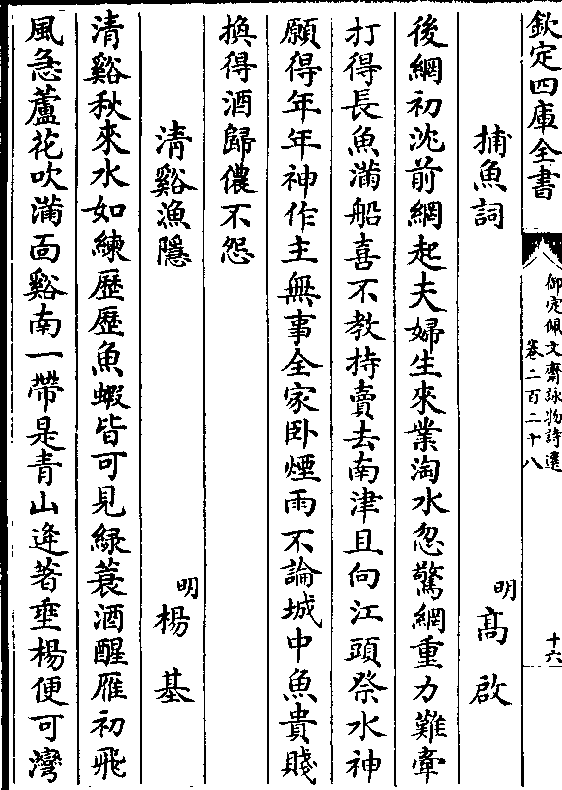 欽定四庫全書
御定佩文齋詠物詩選
卷二百二十八
十六
捕魚詞
明
高啟
後網初沈前網起夫婦生來業淘水忽驚網重力難牽
打得長魚滿船喜不教持賣去南津且向江頭祭水神
願得年年神作主無事全家卧煙雨不論城中魚貴賤
換得酒歸儂不怨
清谿漁隱
明
楊基
清谿秋來水如練歷歷魚蝦皆可見綠蓑酒醒雁初飛
風急蘆花吹滿面谿南一帶是青山逄著垂楊便可灣